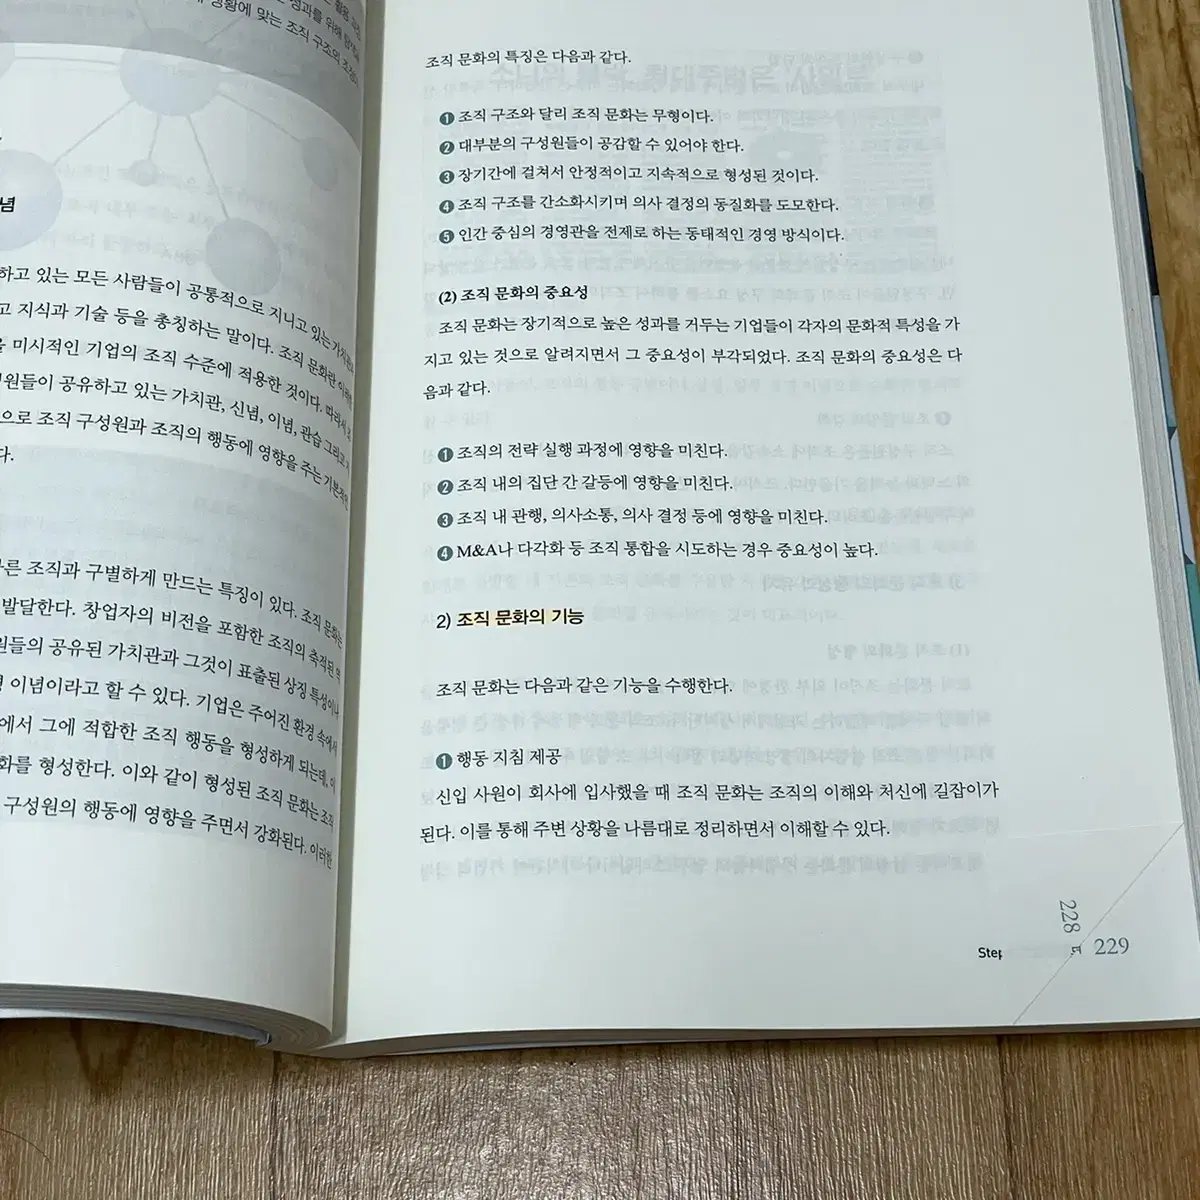 성과를 위해
상황에 맞는 조직 구조의 조정
념
하고 있는 모든 사람들이 공통적으로 지니고 있는 가치관과
고 지식과 기술 등을 총칭하는 말이다. 조직 문화란 이러한
미시적인 기업의 조직 수준에 적용한 것이다. 따라서
원들이 공유하고 있는 가치관, 신념, 이념, 관습 그리고
으로 조직 구성원과 조직의 행동에 영향을 주는 기본적인
다.
다른 조직과 구별하게 만드는 특징이 있다. 조직 문화는
발달한다. 창업자의 비전을 포함한 조직의 축적된 역
원들의 공유된 가치관과 그것이 표출된 상징 특성이나
이념이라고 할 수 있다. 기업은 주어진 환경 속에서
에서 그에 적합한 조직 행동을 형성하게 되는데, 이
화를 형성한다. 이와 같이 형성된 조직 문화는 조직
구성원의 행동에 영향을 주면서 강화된다. 이러한
조직 문화의 특징은 다음과 같다.
❶ 조직 구조와 달리 조직 문화는 무형이다.
❷ 대부분의 구성원들이 공감할 수 있어야 한다.
❸ 장기간에 걸쳐서 안정적이고 지속적으로 형성된 것이다.
❹ 조직 구조를 간소화시키며 의사 결정의 동질화를 도모한다.
❺ 인간 중심의 경영관을 전제로 하는 동태적인 경영 방식이다.
(2) 조직 문화의 중요성
조직 문화는 장기적으로 높은 성과를 거두는 기업들이 각자의 문화적 특성을 가
지고 있는 것으로 알려지면서 그 중요성이 부각되었다. 조직 문화의 중요성은 다
음과 같다.
❶ 조직의 전략 실행 과정에 영향을 미친다.
❷ 조직 내의 집단 간 갈등에 영향을 미친다.
❸ 조직 내 관행, 의사소통, 의사 결정 등에 영향을 미친다.
❹ M&A나 다각화 등 조직 통합을 시도하는 경우 중요성이 높다.
2) 조직 문화의 기능
조직 문화는 다음과 같은 기능을 수행한다.
❶ 행동 지침 제공
신입 사원이 회사에 입사했을 때 조직 문화는 조직의 이해와 처신에 길잡이가
된다. 이를 통해 주변 상황을 나름대로 정리하면서 이해할 수 있다.
228
Step
229